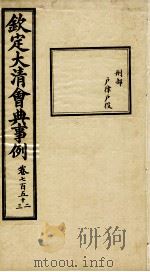 欽定大清會典事例
卷七百五十二
三
刑部
戶律戶役
www.mtoou.info